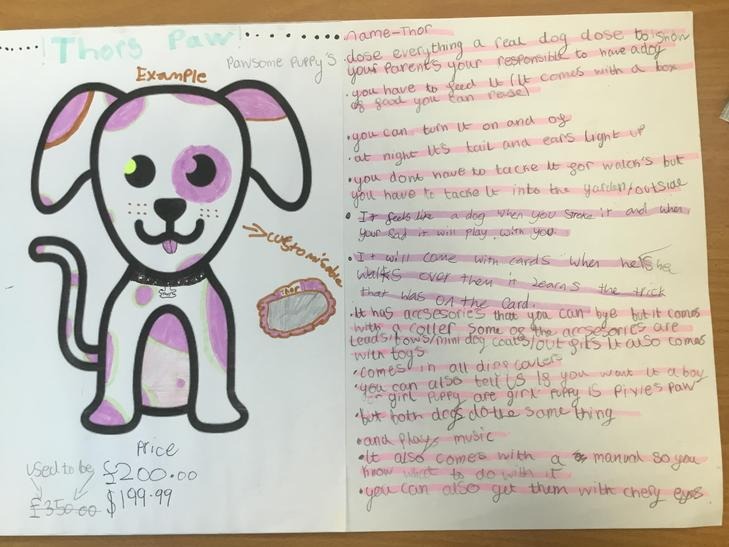 Thors Paw!
Pawsome Puppy's
Example
customisable
Thor
Price
used to be
£350.00
£200.00
$199.99
name-Thor
dose everything a real dog dose to show
your parents your responsible to have a dog
• you have to feed it (It comes with a box
of food you can reuse)
• you can turn it on and of
• at night its tail and ears light up
• you dont have to tacke it for walck's but
you have to tacke it into the garden/outside
• It feels like a dog when you stroke it and when
your sad it will play with you.
• It will come with cards when he/she
walks over them it learns the trick
that was on the card.
• It has accsesories that you can bye but it comes
with a coller some of the accsesories are
leads/bows/mini dog coats/out fits it also comes
with toys
• comes in all diffs coulers
• you can also tell us if you want it a boy
or girl puppy are girl puppy is pixies paw
but both dogs do the same thing
• and plays music
• It also comes with a manual so you
know what to do with it
• you can also get them with chery eyes